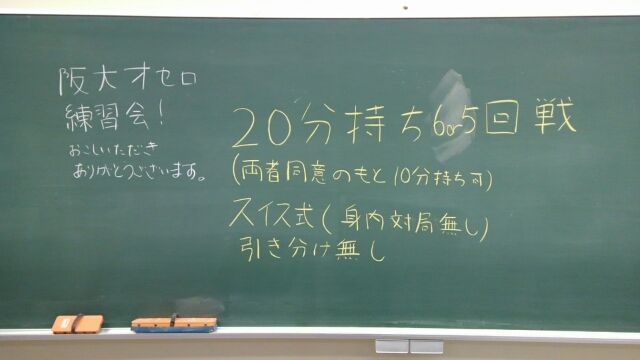 阪大オセロ
練習会!
おこしいただき
ありがとうございます。
20分持ち6or5回戦
(両者同意のもと10分持ち可)
スイス式(身内対局無し)
引き分け無し